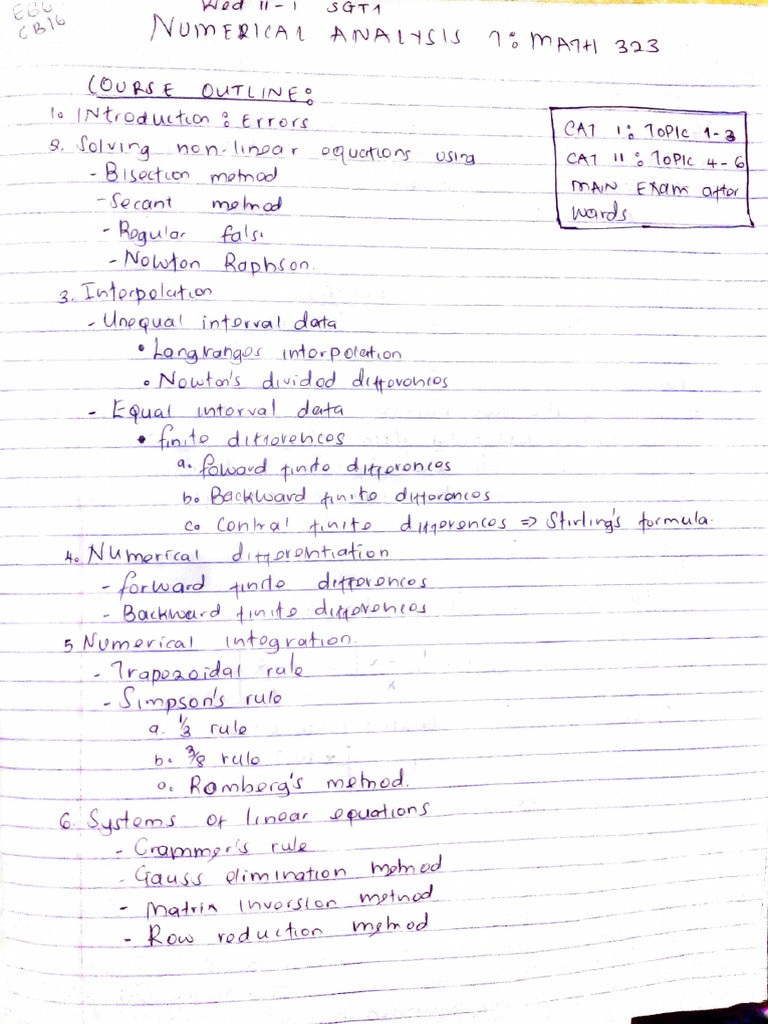 EBG
CB16
Wed 11-1 SGT1
NUMERICAL ANALYSIS 1: MATH 323
COURSE OUTLINE:
1. INtroduction: Errors
2. Solving non-linear equations using
- Bisection method
- Secant method
- Regular falsi
- Newton Raphson.
3. Interpolation
- Unequal interval data
• Langranges interpolation
• Newton's divided differences
- Equal interval data
• finite differences
a. foward finite differences
b. Backward finite differences
c. Central finite differences => Stirling's formula.
4. Numerical differentiation
- forward finite differences
- Backward finite differences
5 Numerical integration
- Trapezoidal rule
- Simpson's rule
a. 1/3 rule
b. 3/8 rule
c. Romberg's method.
6. Systems of linear equations
- Crammer's rule
- Gauss elimination method
- Matrix inversion method
- Row reduction method
CAT I: TOPIC 1-3
CAT II: TOPIC 4-6
MAIN EXAM after
wards